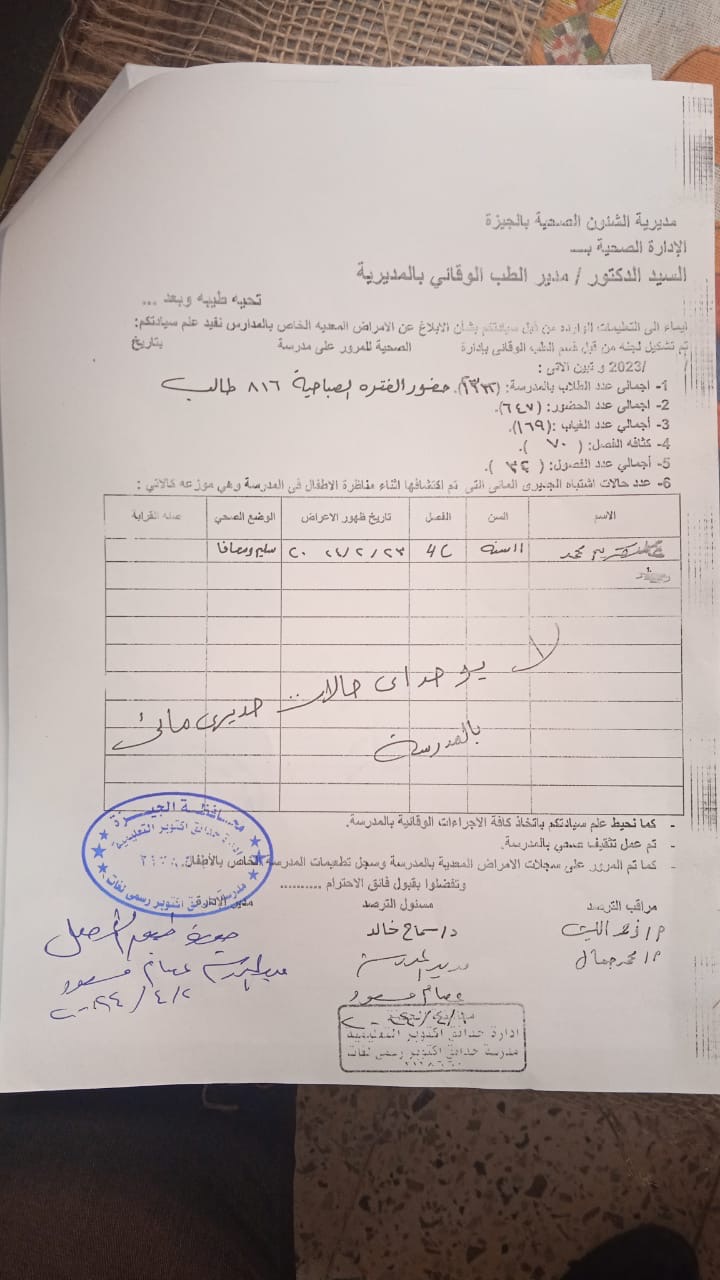 مديرية الشئون الصحية بالجيزة
الإدارة الصحية بـــ
السيد الدكتور / مدير الطب الوقائي بالمديرية
تحيه طيبه وبعد ...
ايماء الى التعليمات الوارده من قبل سيادتكم بشأن الابلاغ عن الامراض المعديه الخاص بالمدارس نفيد علم سيادتكم:
تم تشكيل لجنه من قبل قسم الطب الوقائى بإدارة الصحية للمرور على مدرسة بتاريخ
/2023 و تبين الاتى :
1- اجمالى عدد الطلاب بالمدرسة: (١٣٢٢). حضور الفتره الصباحية ٨١٦ طالب
2- اجمالى عدد الحضور: (٦٤٧).
3- أجمالى عدد الغياب :(١٦٩).
4- كثافه الفصل: ( ٧٠ ).
5- أجمالى عدد الفصول: ( ٣٤ ).
6- عدد حالات اشتباه الجديرى المائى التى تم اكتشافها اثناء مناظرة الاطفال فى المدرسة وهي موزعه كالاتي :
الاسم السن الفصل تاريخ ظهور الاعراض الوضع الصحي صله القرابة
محمد ١١ سنة 4C ٢٠٢٤/٢/٢٣ سليم ومعافا
لا يوجد اى حالات جديرى مائى
بالمدرسة
- كما نحيط علم سيادتكم باتخاذ كافة الاجراءات الوقائية بالمدرسة.
- تم عمل تثقيف صحي بالمدرسة.
- كما تم المرور على سجلات الامراض المعدية بالمدرسة وسجل تطعيمات المدرسة الخاص بالأطفال.
وتفضلوا بقبول فائق الاحترام ..........
مراقب الترصد مسئول الترصد مدير الادارة
د/ سماح خالد
م/ محمد جمال
مدير المدرسة
عصام مسعود
مدير المدرسة عصام مسعود
٢٠٢٤/٤/٢
محافظة الجيزة
ادارة حدائق اكتوبر التعليمية
مدرسة حدائق اكتوبر رسمى لغات
ادارة حدائق اكتوبر التعليمية
مدرسة حدائق اكتوبر رسمى لغات